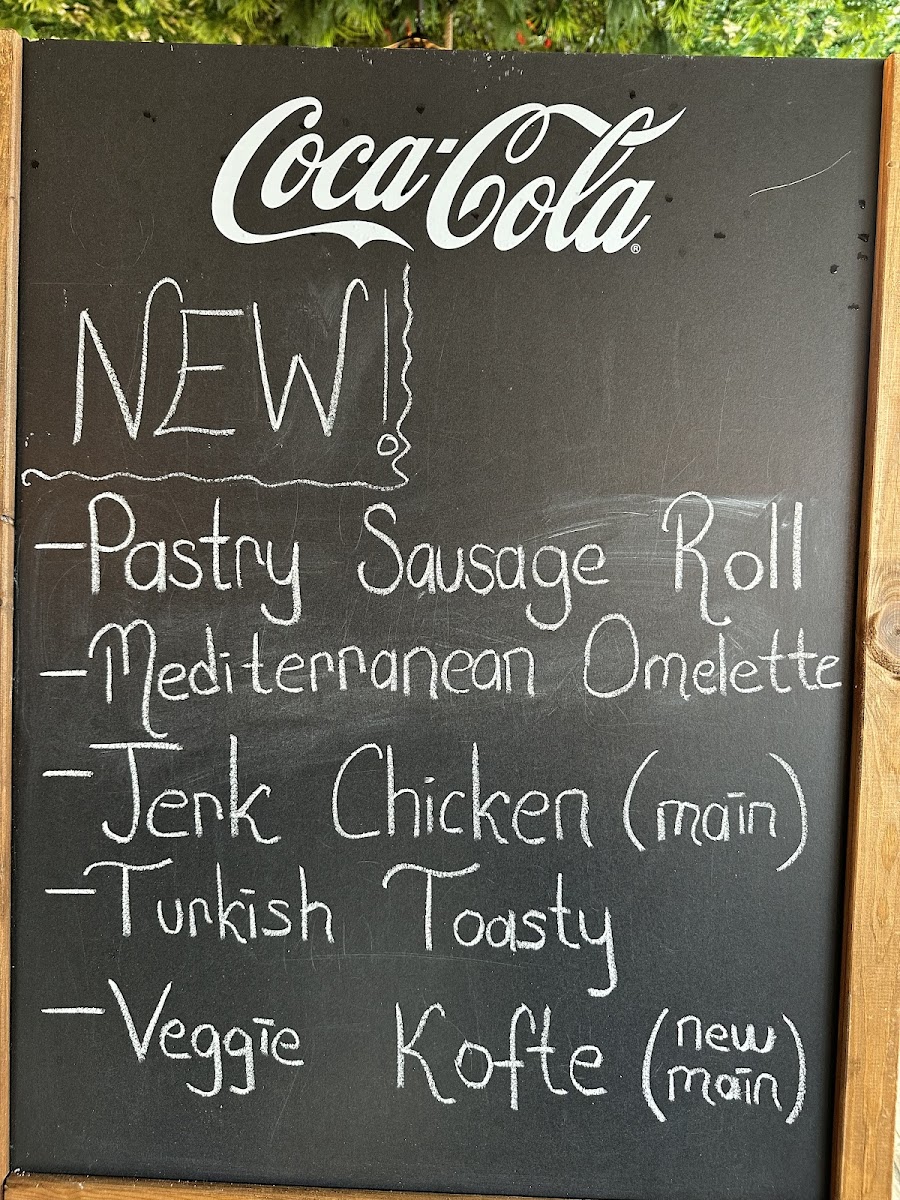 Coca-Cola®
NEW!
-Pastry Sausage Roll
-Mediterranean Omelette
-Jerk Chicken (main)
-Turkish Toasty
-Veggie Kofte (new main)